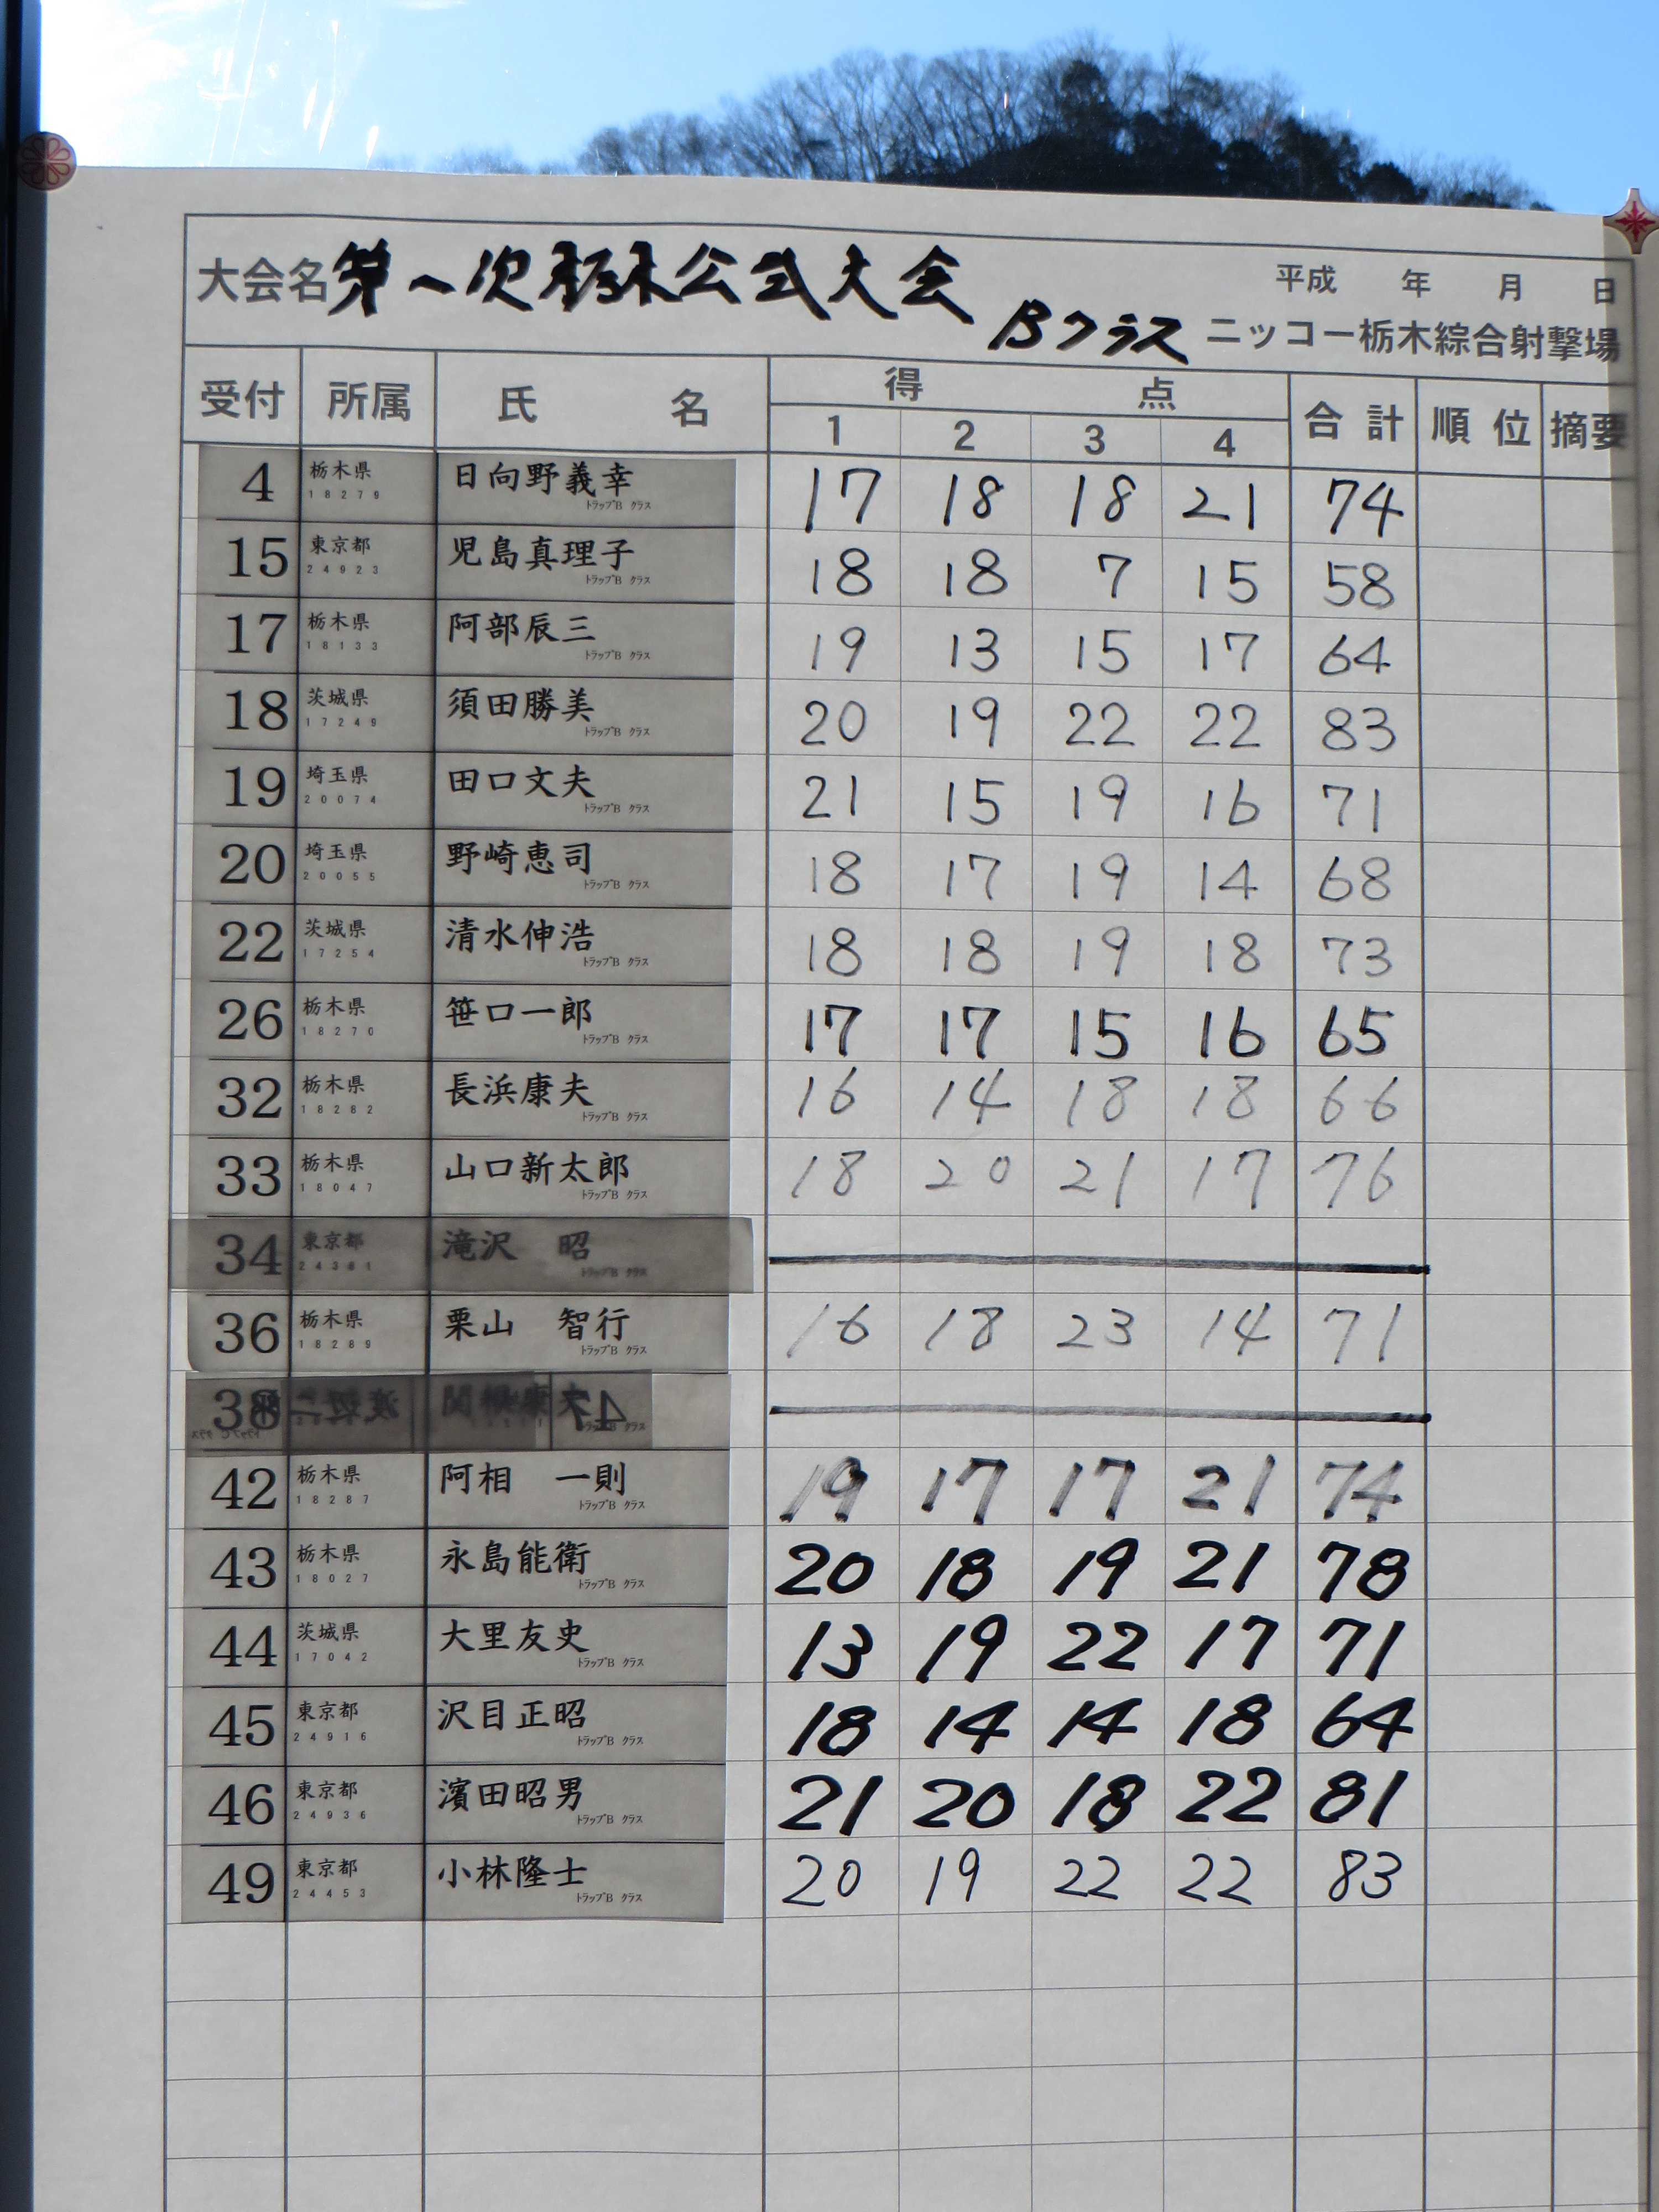 大会名 第一次栃木公式大会 平成 年 月 日
Bクラス ニッコー栃木綜合射撃場
受付 所属 氏 名 得 点 合 計 順 位 摘要
1 2 3 4
4 栃木県 日向野義幸 17 18 18 21 74
18279 トラップB クラス
15 東京都 児島真理子 18 18 7 15 58
24923 トラップB クラス
17 栃木県 阿部辰三 19 13 15 17 64
18133 トラップB クラス
18 茨城県 須田勝美 20 19 22 22 83
17249 トラップB クラス
19 埼玉県 田口文夫 21 15 19 16 71
20074 トラップB クラス
20 埼玉県 野崎恵司 18 17 19 14 68
20055 トラップB クラス
22 茨城県 清水伸浩 18 18 19 18 73
17254 トラップB クラス
26 栃木県 笹口一郎 17 17 15 16 65
18270 トラップB クラス
32 栃木県 長浜康夫 16 14 18 18 66
18282 トラップB クラス
33 栃木県 山口新太郎 18 20 21 17 76
18047 トラップB クラス
34 東京都 滝沢 昭
24381 トラップB クラス
36 栃木県 栗山 智行 16 18 23 14 71
18289 トラップB クラス
38
42 栃木県 阿相 一則 19 17 17 21 74
18287 トラップB クラス
43 栃木県 永島能衛 20 18 19 21 78
18027 トラップB クラス
44 茨城県 大里友史 13 19 22 17 71
17042 トラップB クラス
45 東京都 沢目正昭 18 14 14 18 64
24916 トラップB クラス
46 東京都 濱田昭男 21 20 18 22 81
24936 トラップB クラス
49 東京都 小林隆士 20 19 22 22 83
24453 トラップB クラス